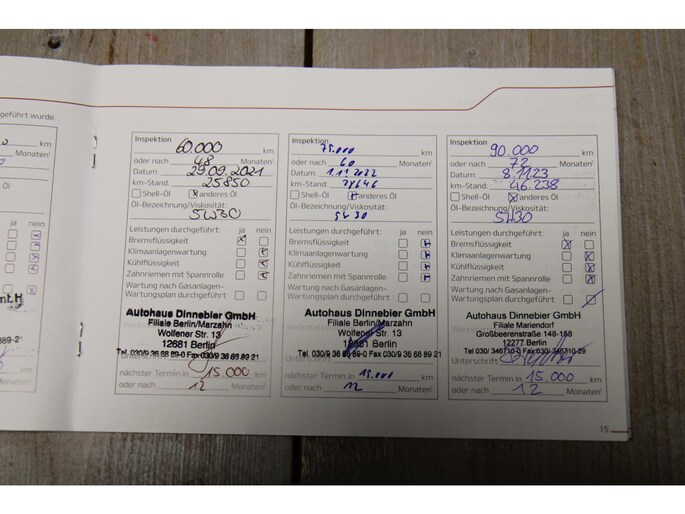 geführt wurde.
km
Monaten¹
Öl
ja nein
Inspektion 60.000 km
oder nach 48 Monaten¹
Datum: 29.09.2021
km-Stand: 25850
Shell-Öl x anderes Öl
Öl-Bezeichnung/Viskosität:
5W30
Leistungen durchgeführt: ja nein
Bremsflüssigkeit x
Klimaanlagenwartung x
Kühlflüssigkeit x
Zahnriemen mit Spannrolle x
Wartung nach Gasanlagen-
Wartungsplan durchgeführt
Autohaus Dinnebier GmbH
Filiale Berlin/Marzahn
Wolfener Str. 13
12681 Berlin
Tel. 030/9 36 68 89-0 Fax 030/9 36 68 89 21
nächster Termin in 15 000 km
oder nach 12 Monaten¹
Inspektion 75.000 km
oder nach 60 Monaten¹
Datum:
km-Stand:
Shell-Öl anderes Öl
Öl-Bezeichnung/Viskosität:
5W30
Leistungen durchgeführt: ja nein
Bremsflüssigkeit
Klimaanlagenwartung
Kühlflüssigkeit
Zahnriemen mit Spannrolle
Wartung nach Gasanlagen-
Wartungsplan durchgeführt
Autohaus Dinnebier GmbH
Filiale Berlin/Marzahn
Wolfener Str. 13
12681 Berlin
Tel. 030/9 36 68 89-0 Fax 030/9 36 68 89 21
nächster Termin in 15.000 km
oder nach 12 Monaten¹
Inspektion 90.000 km
oder nach 72 Monaten¹
Datum: 8.11.23
km-Stand: 46.238
Shell-Öl x anderes Öl
Öl-Bezeichnung/Viskosität:
5W30
Leistungen durchgeführt: ja nein
Bremsflüssigkeit x
Klimaanlagenwartung x
Kühlflüssigkeit x
Zahnriemen mit Spannrolle x
Wartung nach Gasanlagen-
Wartungsplan durchgeführt
Autohaus Dinnebier GmbH
Filiale Mariendorf
Großbeerenstraße 148-158
12277 Berlin
Tel 030/ 346710-0 Fax:030-346710-29
Unterschrift
nächster Termin in 15.000 km
oder nach 12 Monaten¹
15